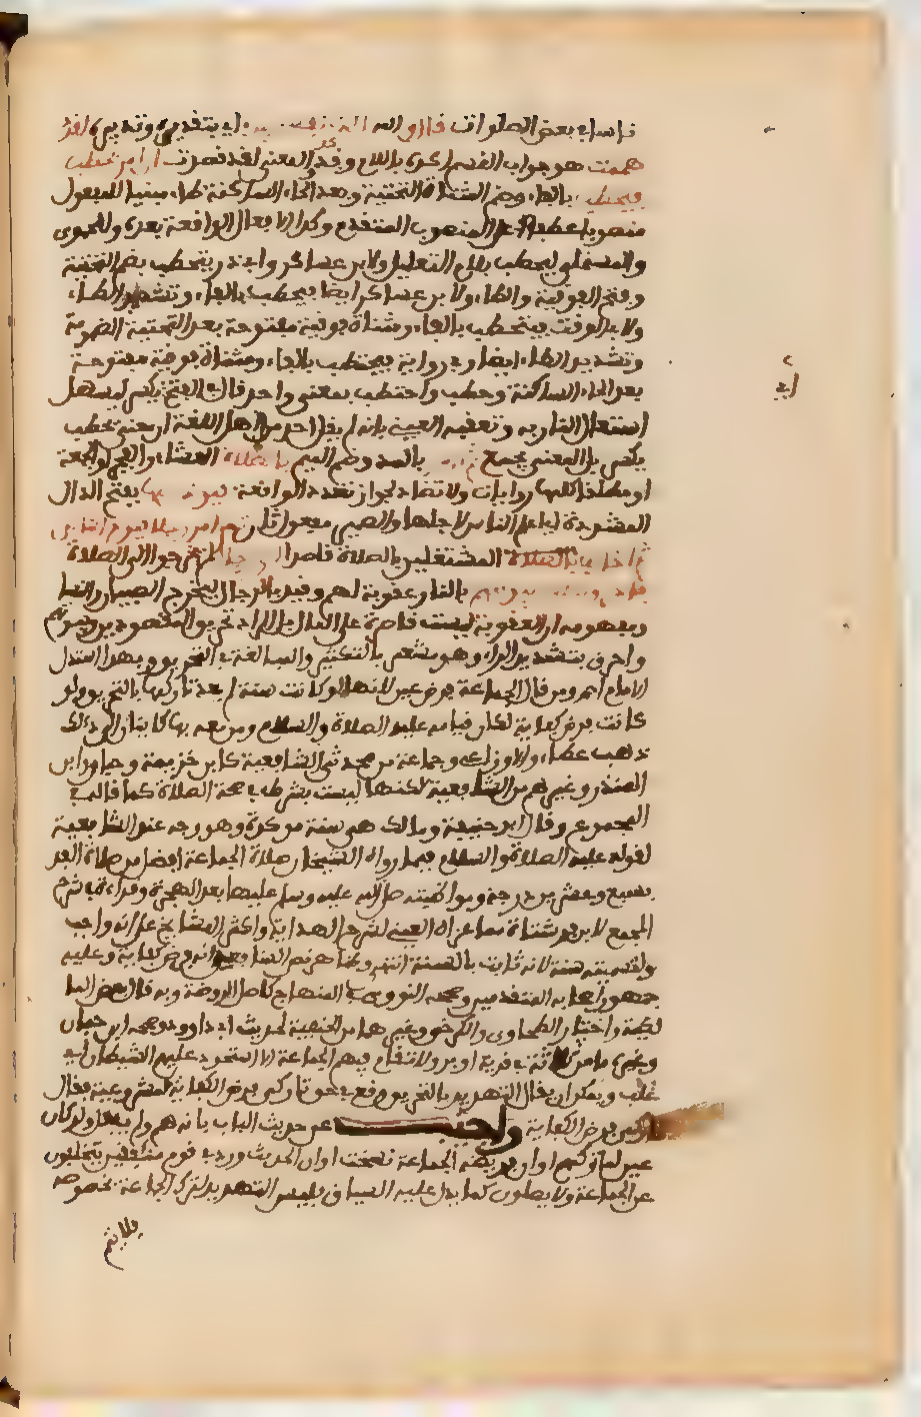 ناسا في بعض الصلوات فقال والله الذي نفسي بيده اي بتقديره وتدبيره لقد
هممت هو جواب القسم اكده باللام وقد والمعنى لقد قصدت ان آمر بحطب
فيحطب بالفاء وضم المثناة التحتية وبعد الحاء الساكنة طاء مبنيا للمفعول
منصوبا عطفا على المنصوب المتقدم وكذا الافعال الواقعة بعده وللحموي
والمستملي ليحطب بلام التعليل ولابن عساكر وابي ذر يتحطب بضم التحتية
وفتح الفوقية والطاء ولابن عساكر ايضا فيحطب بالفاء وتشديد الطاء
ولابي الوقت فيتحطب بالفاء ومثناة فوقية مفتوحة بعد التحتية المضمومة
وتشديد الطاء ايضا وفي رواية فيحتطب بالفاء ومثناة فوقية مفتوحة
اي
بعد الحاء الساكنة وحطب واحتطب بمعنى واحد قال في الفتح يكسر ليسهل
اشتعال النار به وتعقبه العيني بانه لم يقل احد من اهل اللغة ان معنى يحطب
يكسر بل المعنى يجمع ثم آمر بالمد وضم الميم بالصلاة العشاء او الفجر او الجمعة
او مطلقا كلها روايات ولا تضاد لجواز تعدد الواقعة فيؤذن لها بفتح الذال
المشددة اي اعلم الناس لاجلها والضمير مفعول ثان ثم آمر رجلا فيؤم الناس
ثم اخالف المشتغلين بالصلاة قاصدا الى رجال لم يخرجوا الى الصلاة
فاحرق عليهم بيوتهم بالنار عقوبة لهم وقيد بالرجال ليخرج الصبيان والنساء
ومفهومه ان العقوبة ليست قاصرة على المال بل المراد تحريق المقصودين وبيوتهم
واحرق بتشديد الراء وهو مشعر بالتكثير والمبالغة في التحريق وبهذا استدل
الامام احمد ومن قال ان الجماعة فرض عين لانها لو كانت سنة لم يهدد تاركها بالتحريق ولو
كانت فرض كفاية لكان قيامه عليه الصلاة والسلام ومن معه بها كافيا والى ذلك
ذهب عطاء والاوزاعي وجماعة من محدثي الشافعية كابن خزيمة وحبان وابن
المنذر وغيرهم من الشافعية لكنها ليست بشرط في صحة الصلاة كما قاله في
المجموع وقال ابو حنيفة ومالك هي سنة مؤكدة وهو وجه عند الشافعية
لقوله عليه الصلاة والسلام فيما رواه الشيخان صلاة الجماعة افضل من صلاة الفذ
بسبع وعشرين درجة ومواظبته صلى الله عليه وسلم عليها بعد الهجرة وقراءة في شرح
المجمع لابن فرشتاه مما عزاه العيني لشرح الهداية واكثر المشايخ على انه واجب
وتسميته سنة لانه ثابت بالسنة انتهى وظاهر نص الشافعي انه فرض كفاية وعليه
جمهور اصحابه المتقدمين وصححه النووي في المنهاج كاصل الروضة وبه قال بعض الما
لكية واختاره الطحاوي والكرخي وغيرهما من الحنفية لحديث ابي داوود وصححه ابن حبان
وغيره ما من ثلاثة في قرية او بدو لا تقام فيهم الجماعة الا استحوذ عليهم الشيطان اي
غلب ويمكن ان يقال التهديد بالتحريق وقع في حق تاركي فرض الكفاية لمشروعية قتال
تاركي فرض الكفاية واجيب عن حديث الباب بانه هم ولم يفعل ولو كان
عين لما تركهم او ان فرضية الجماعة نسخت او ان الحديث ورد في قوم منافقين يتخلفون
عن الجماعة ولا يصلون كما يدل عليه السياق فليس التهديد لترك الجماعة بخصوصه
فلا يتم